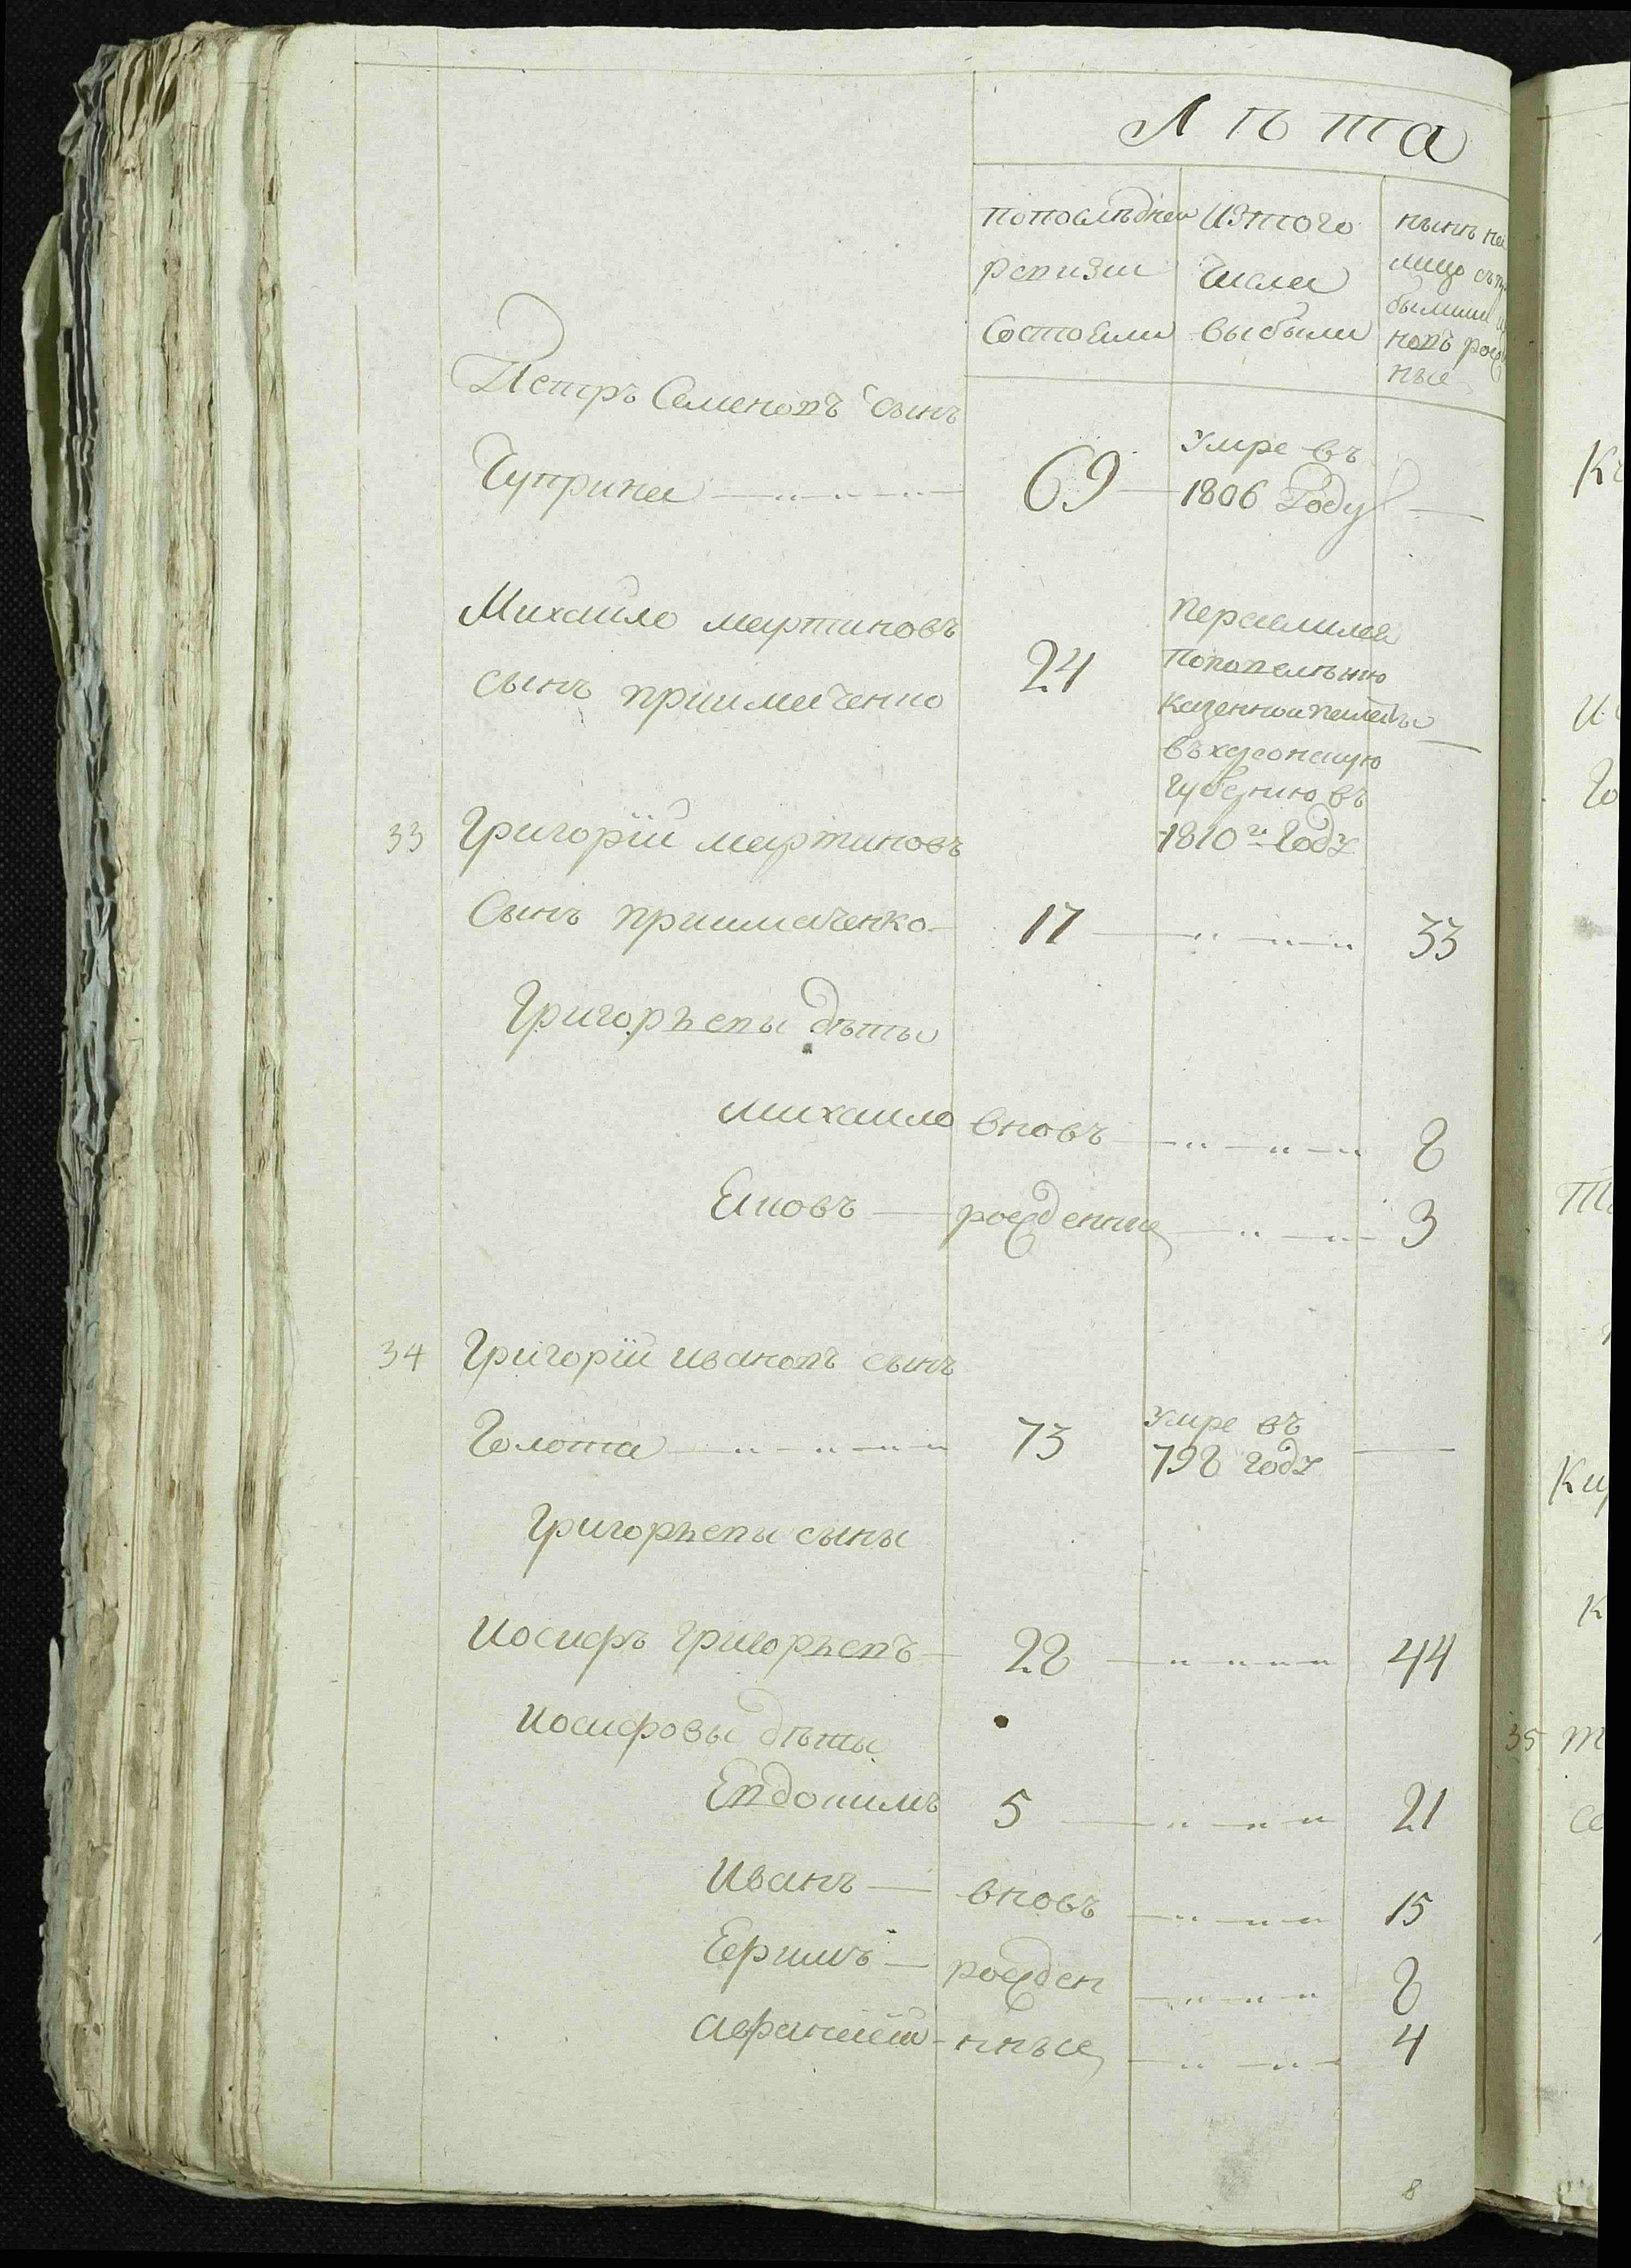 Лѣта
попослѣднеи изтого нынѣ на
ревизіи числа лицо съ при
состояли выбыли былыми и в
новъ рожд
ные
Петръ Семеновъ сынъ
Чуприна 69 Умре въ 1806 Году
Михаило мартиновъ
сынъ приимаченко 24 Переселился
Поповелѣнию
казенной палаты
въ херсонскую
губернию въ
1810м Годѣ
33 Григорїй мартиновъ
Сынъ приимаченко 17 33
Григорьевы дѣты
михаило вновь 8
Еиовъ рожденние 3
34 Григорїй ивановъ сынъ
Голота 73 Умре въ
798 годѣ
Григорьевы сыны
Иосифъ григорьевъ 28 44
Иосифовы дѣты
Евдокимъ 5 21
Иванъ вновь 15
Ефимъ рожден 8
афанасїй нные 4
8
35